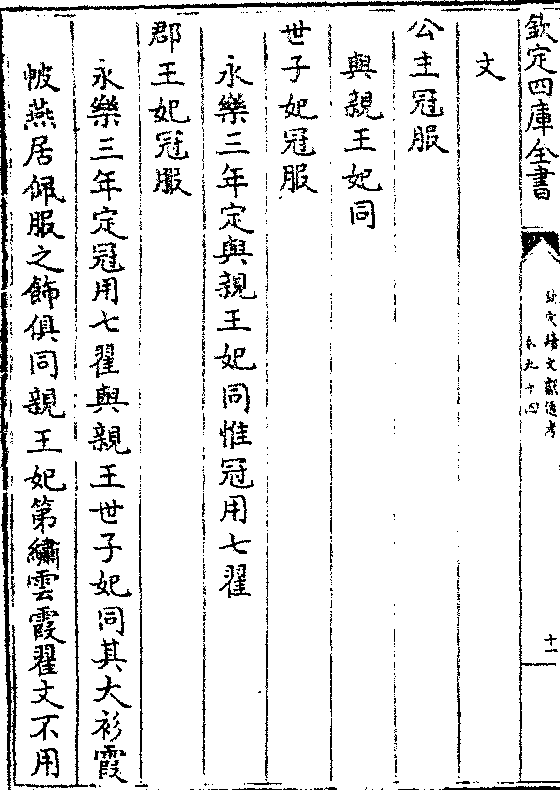 欽定四庫全書
欽定續文獻通考
卷九十四
十一
文
公主冠服
與親王妃同
世子妃冠服
永樂三年定與親王妃同惟冠用七翟
郡王妃冠服
永樂三年定冠用七翟與親王世子妃同其大衫霞
帔燕居佩服之飾俱同親王妃第繡雲霞翟文不用